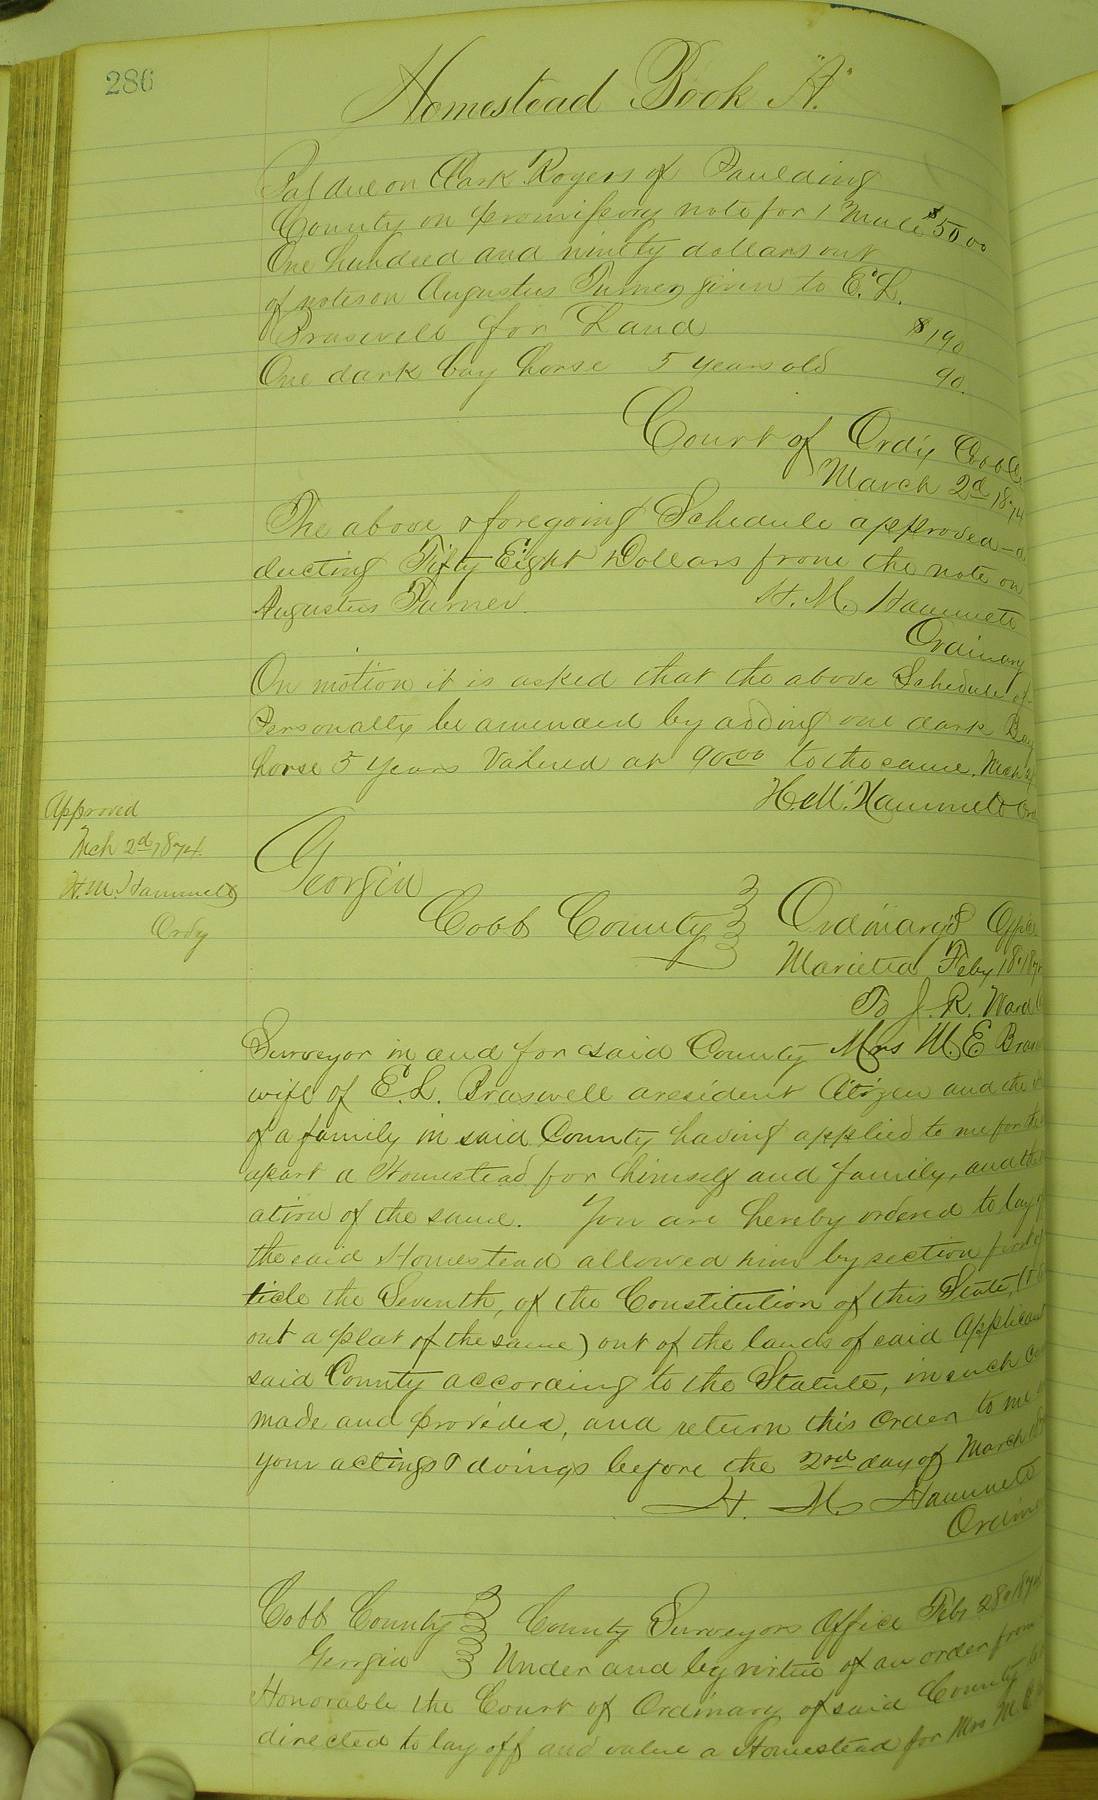 286
Homestead Book "A."
Bal due on Clark Rogers of Paulding
County on promissory note for 1 Mule $50 00
One hundred and ninety dollars out
of notes on Augustus Turner given to E. L.
Braswell for Land $190
One dark bay horse 5 years old 90.
Court of Ordy Cobb
March 2d 1874
The above & foregoing Schedule approved – d
ducting Fifty Eight Dollars from the note on
Augustus Turner. H. M. Hammett
Ordinary
On motion it is asked that the above Schedule of
Personalty be amended by adding one dark Bay
horse 5 years Valued at 90.00 to the same. Mch 2
H. M. Hammett Ord
Approved
Mch 2d 1874.
H. M. Hammett
Ordy
Georgia
Cobb County Ordinary's Office
Marietta Feby 18, 187
To J. R. Ward
Surveyor in and for said County Mrs M. E Bras
wife of E. L. Braswell a resident Citizen and the
of a family in said County having applied to me for the
apart a Homestead for himself and family, and the
ation of the same. You are hereby ordered to lay
the said Homestead allowed him by section first of
ticle the Seventh, of the Constitution of this State,
out a plat of the same) out of the lands of said Applicant
said County according to the Statute, in such
made and provided, and return this order to me
your actings & doings before the 2nd day of March
H. M. Hammett
Ordin
Cobb County County Surveyors Office Feby 28 1874
Georgia Under and by virtue of an order from
Honorable the Court of Ordinary of said County
directed to lay off and value a Homestead for Mrs M. E